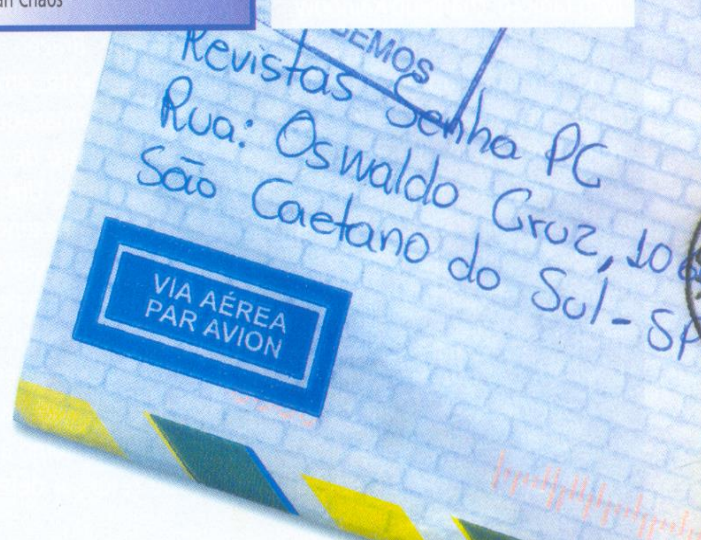 Chaos
Revistas Senha PC
Rua: Oswaldo Cruz, 10
São Caetano do Sul - SP
VIA AÉREA
PAR AVION